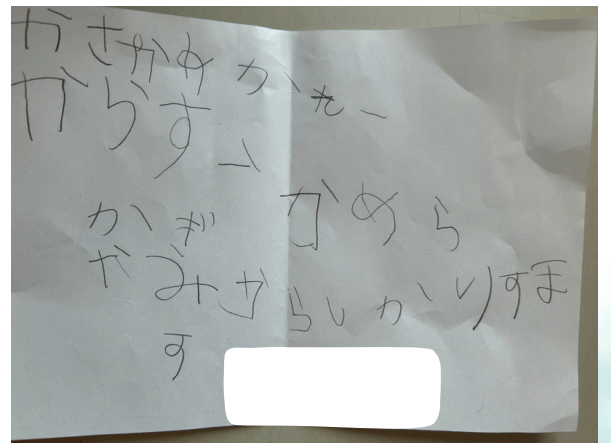 かさ かめ かれー
からす
かぎ かめら
かみ からし かりすま
す